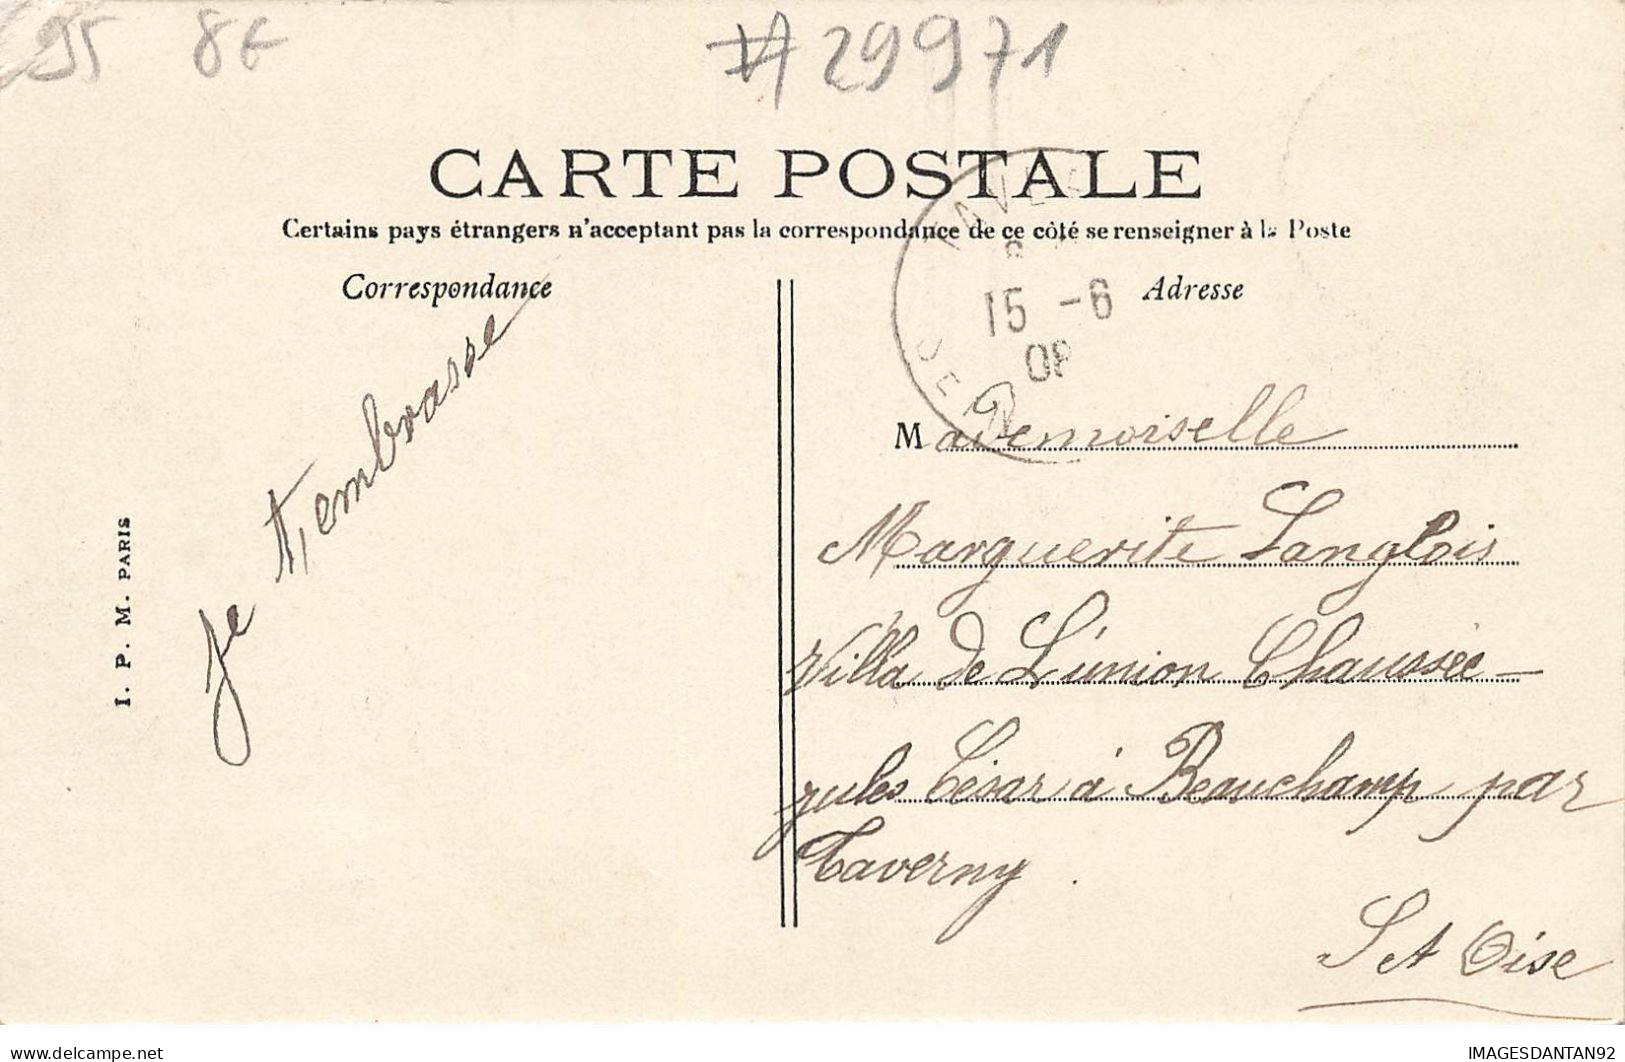 95 8€
#29971
CARTE POSTALE
Certains pays étrangers n'acceptant pas la correspondance de ce côté se renseigner à la Poste
Correspondance
Adresse
15 -6
08
Je t'embrasse
I. P. M. PARIS
Mademoiselle
Marguerite Langlois
Villa de L'union Chaussée
jules César à Beauchamp par
Taverny
S et Oise
www.delcampe.net
IMAGESDANTAN92